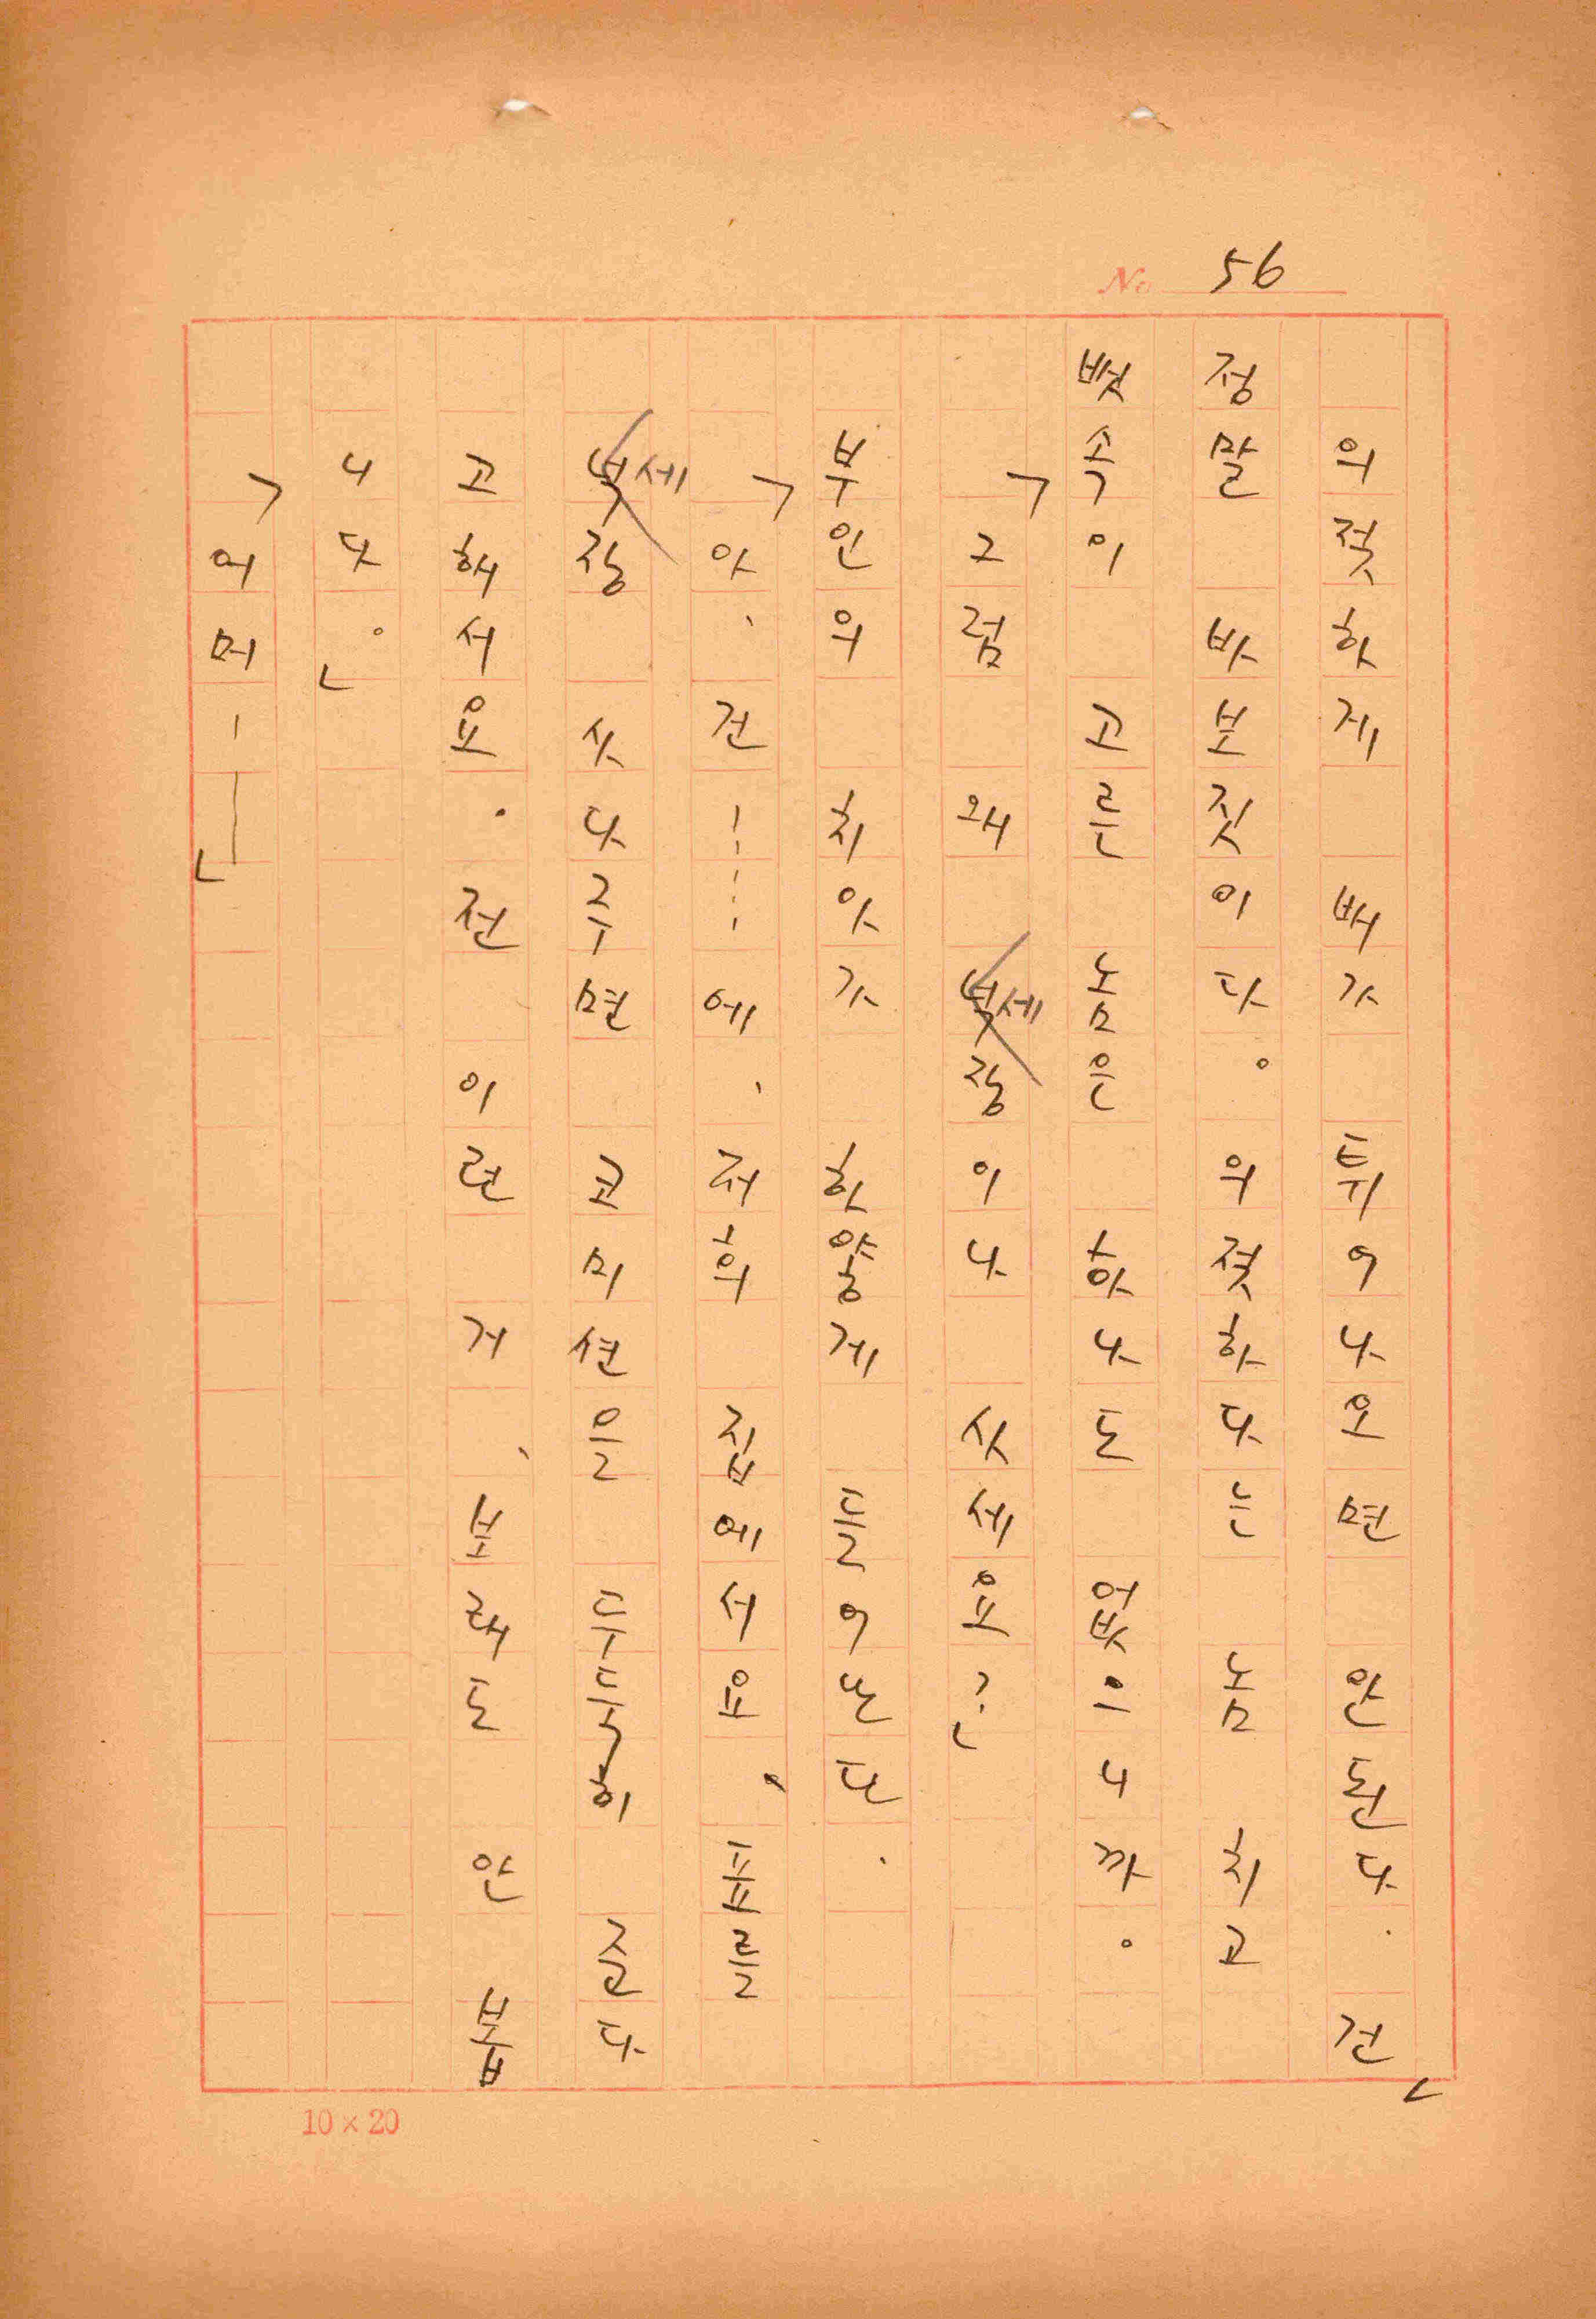 No 56
의젓하게 배가 튀어나오면 안된다. 건」
정말 바보짓이다. 의젓하다는 놈 치고
뱃속이 고른 놈은 하나도 없으니까.
「그럼 왜 세장이나 삿세요?」
부인의 치아가 하얗게 들어난다.
「아, 건……예, 저희 집에서요, 표를
세장 사다주면 코미션을 두둑히 준다
고 해서요. 전 이런 거, 보래도 안 봅
니다.」
「어머ー―」
10×20